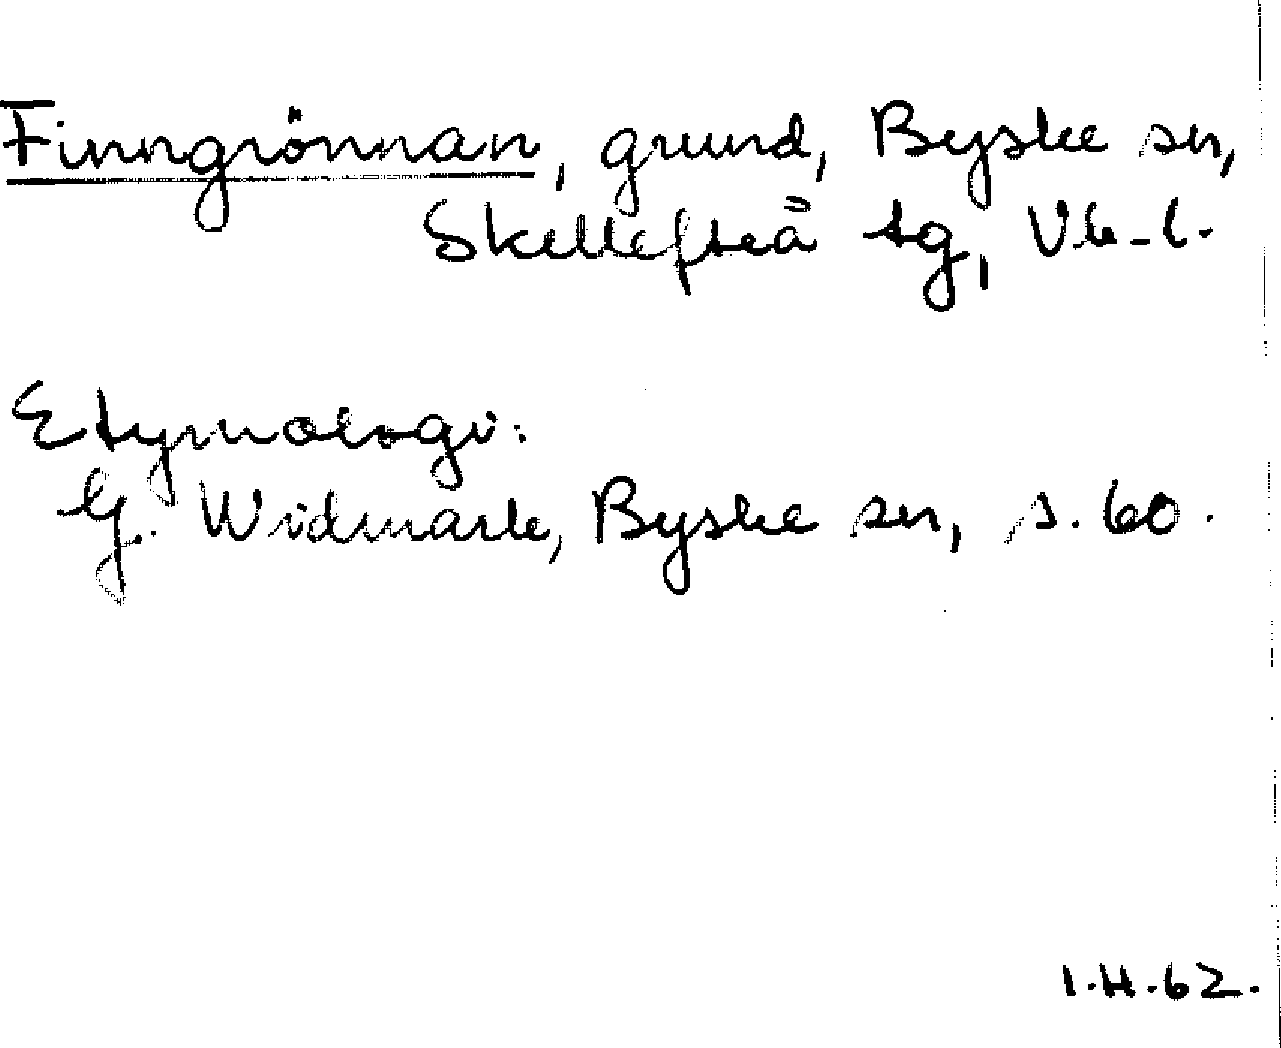 Finngrönnan, grund, Byske sn,
Skellefteå tg, Vb-l.
Etymologi:
G. Widmark, Byske sn, s. 60.
I.H.62.